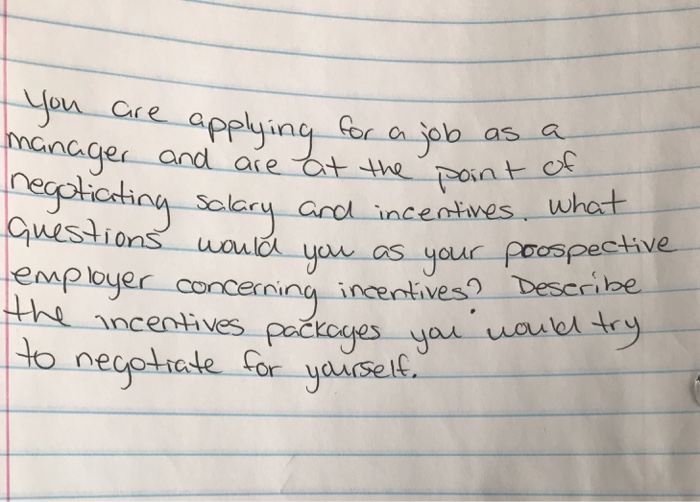 You are applying for a job as a
manager and are at the point of
negotiating salary and incentives. What
Questions would you as your poospective
employer concerning incentives? Describe
the incentives packages you would try
to negotiate for yourself.